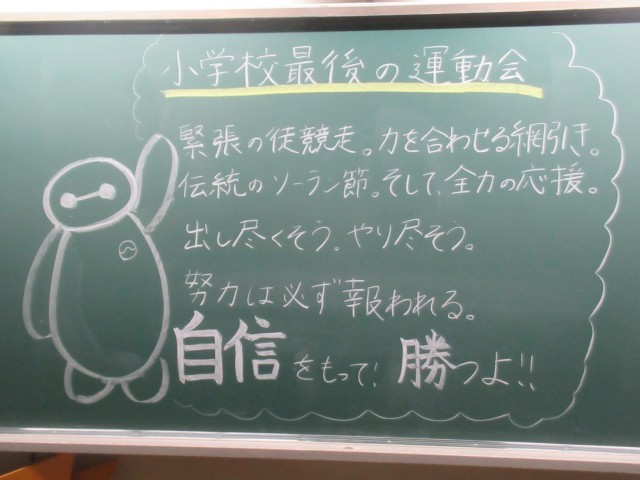 小学校最後の運動会
緊張の徒競走。力を合わせる綱引き。
伝統のソーラン節。そして、全力の応援。
出し尽くそう。やり尽そう。
努力は必ず報われる。
自信をもって! 勝つよ!!